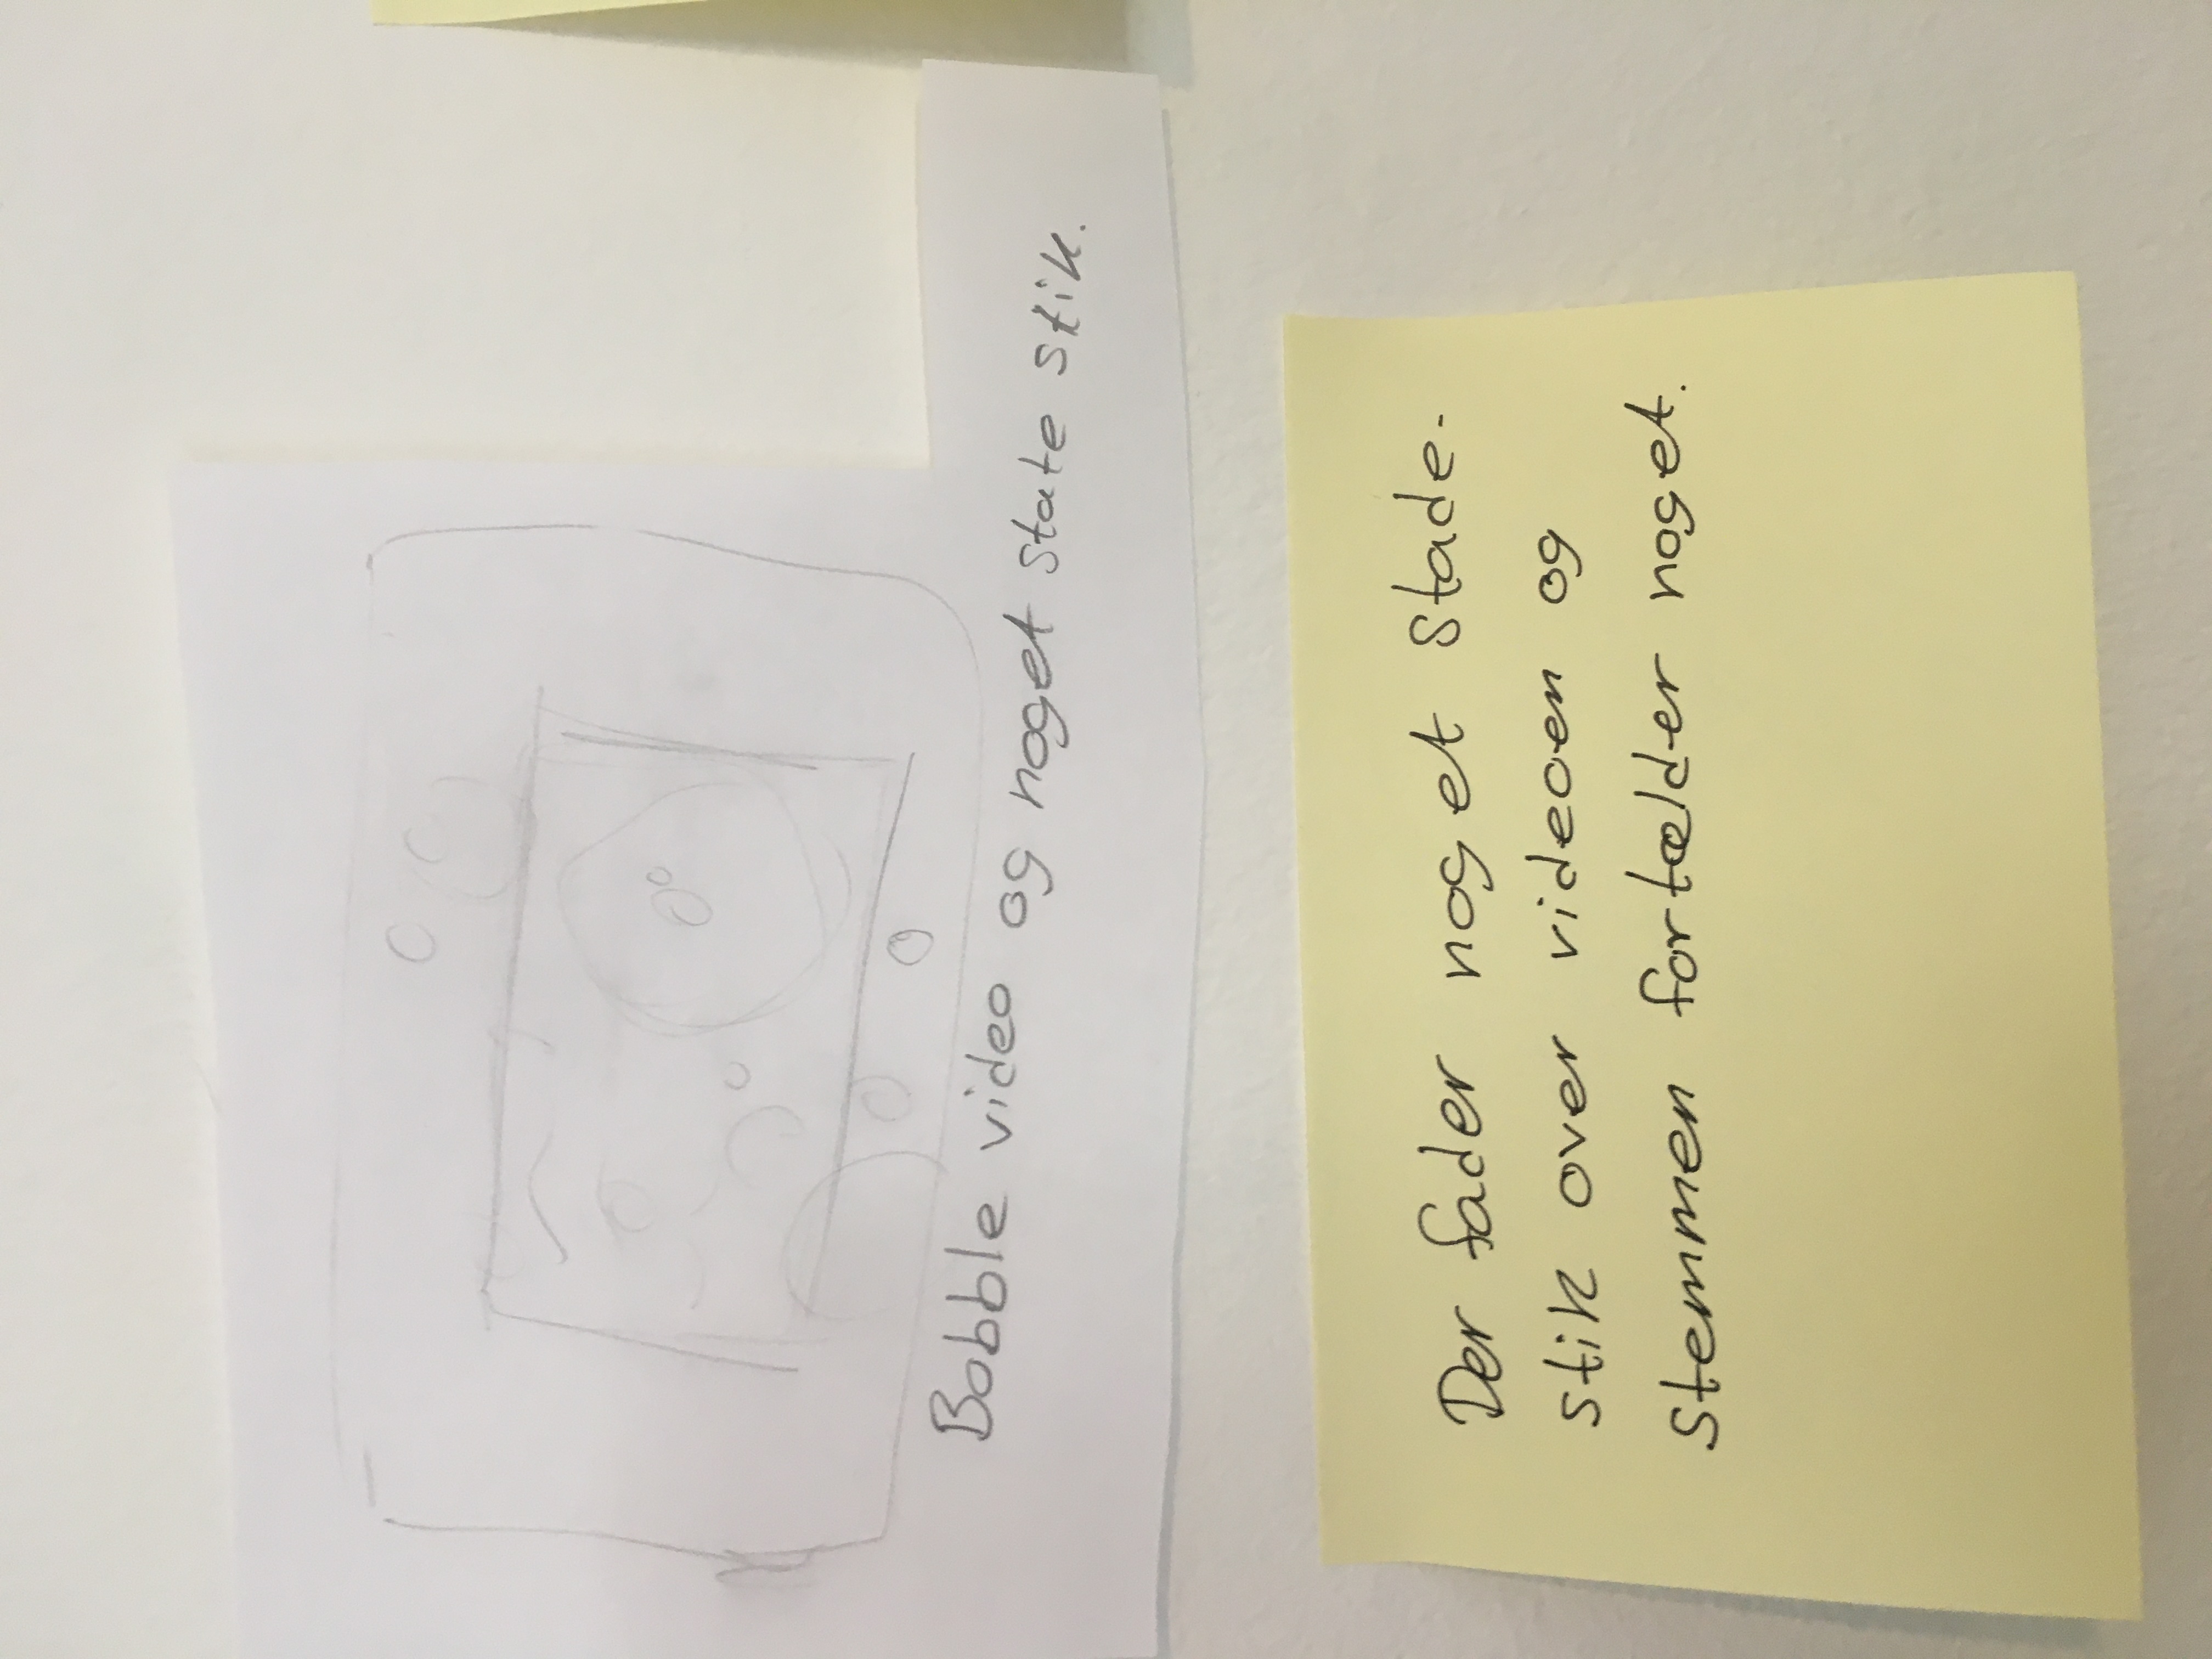 Bobble video og noget state stik.
Der fader noget stade-
stik over videoen og
stemmen fortælder noget.